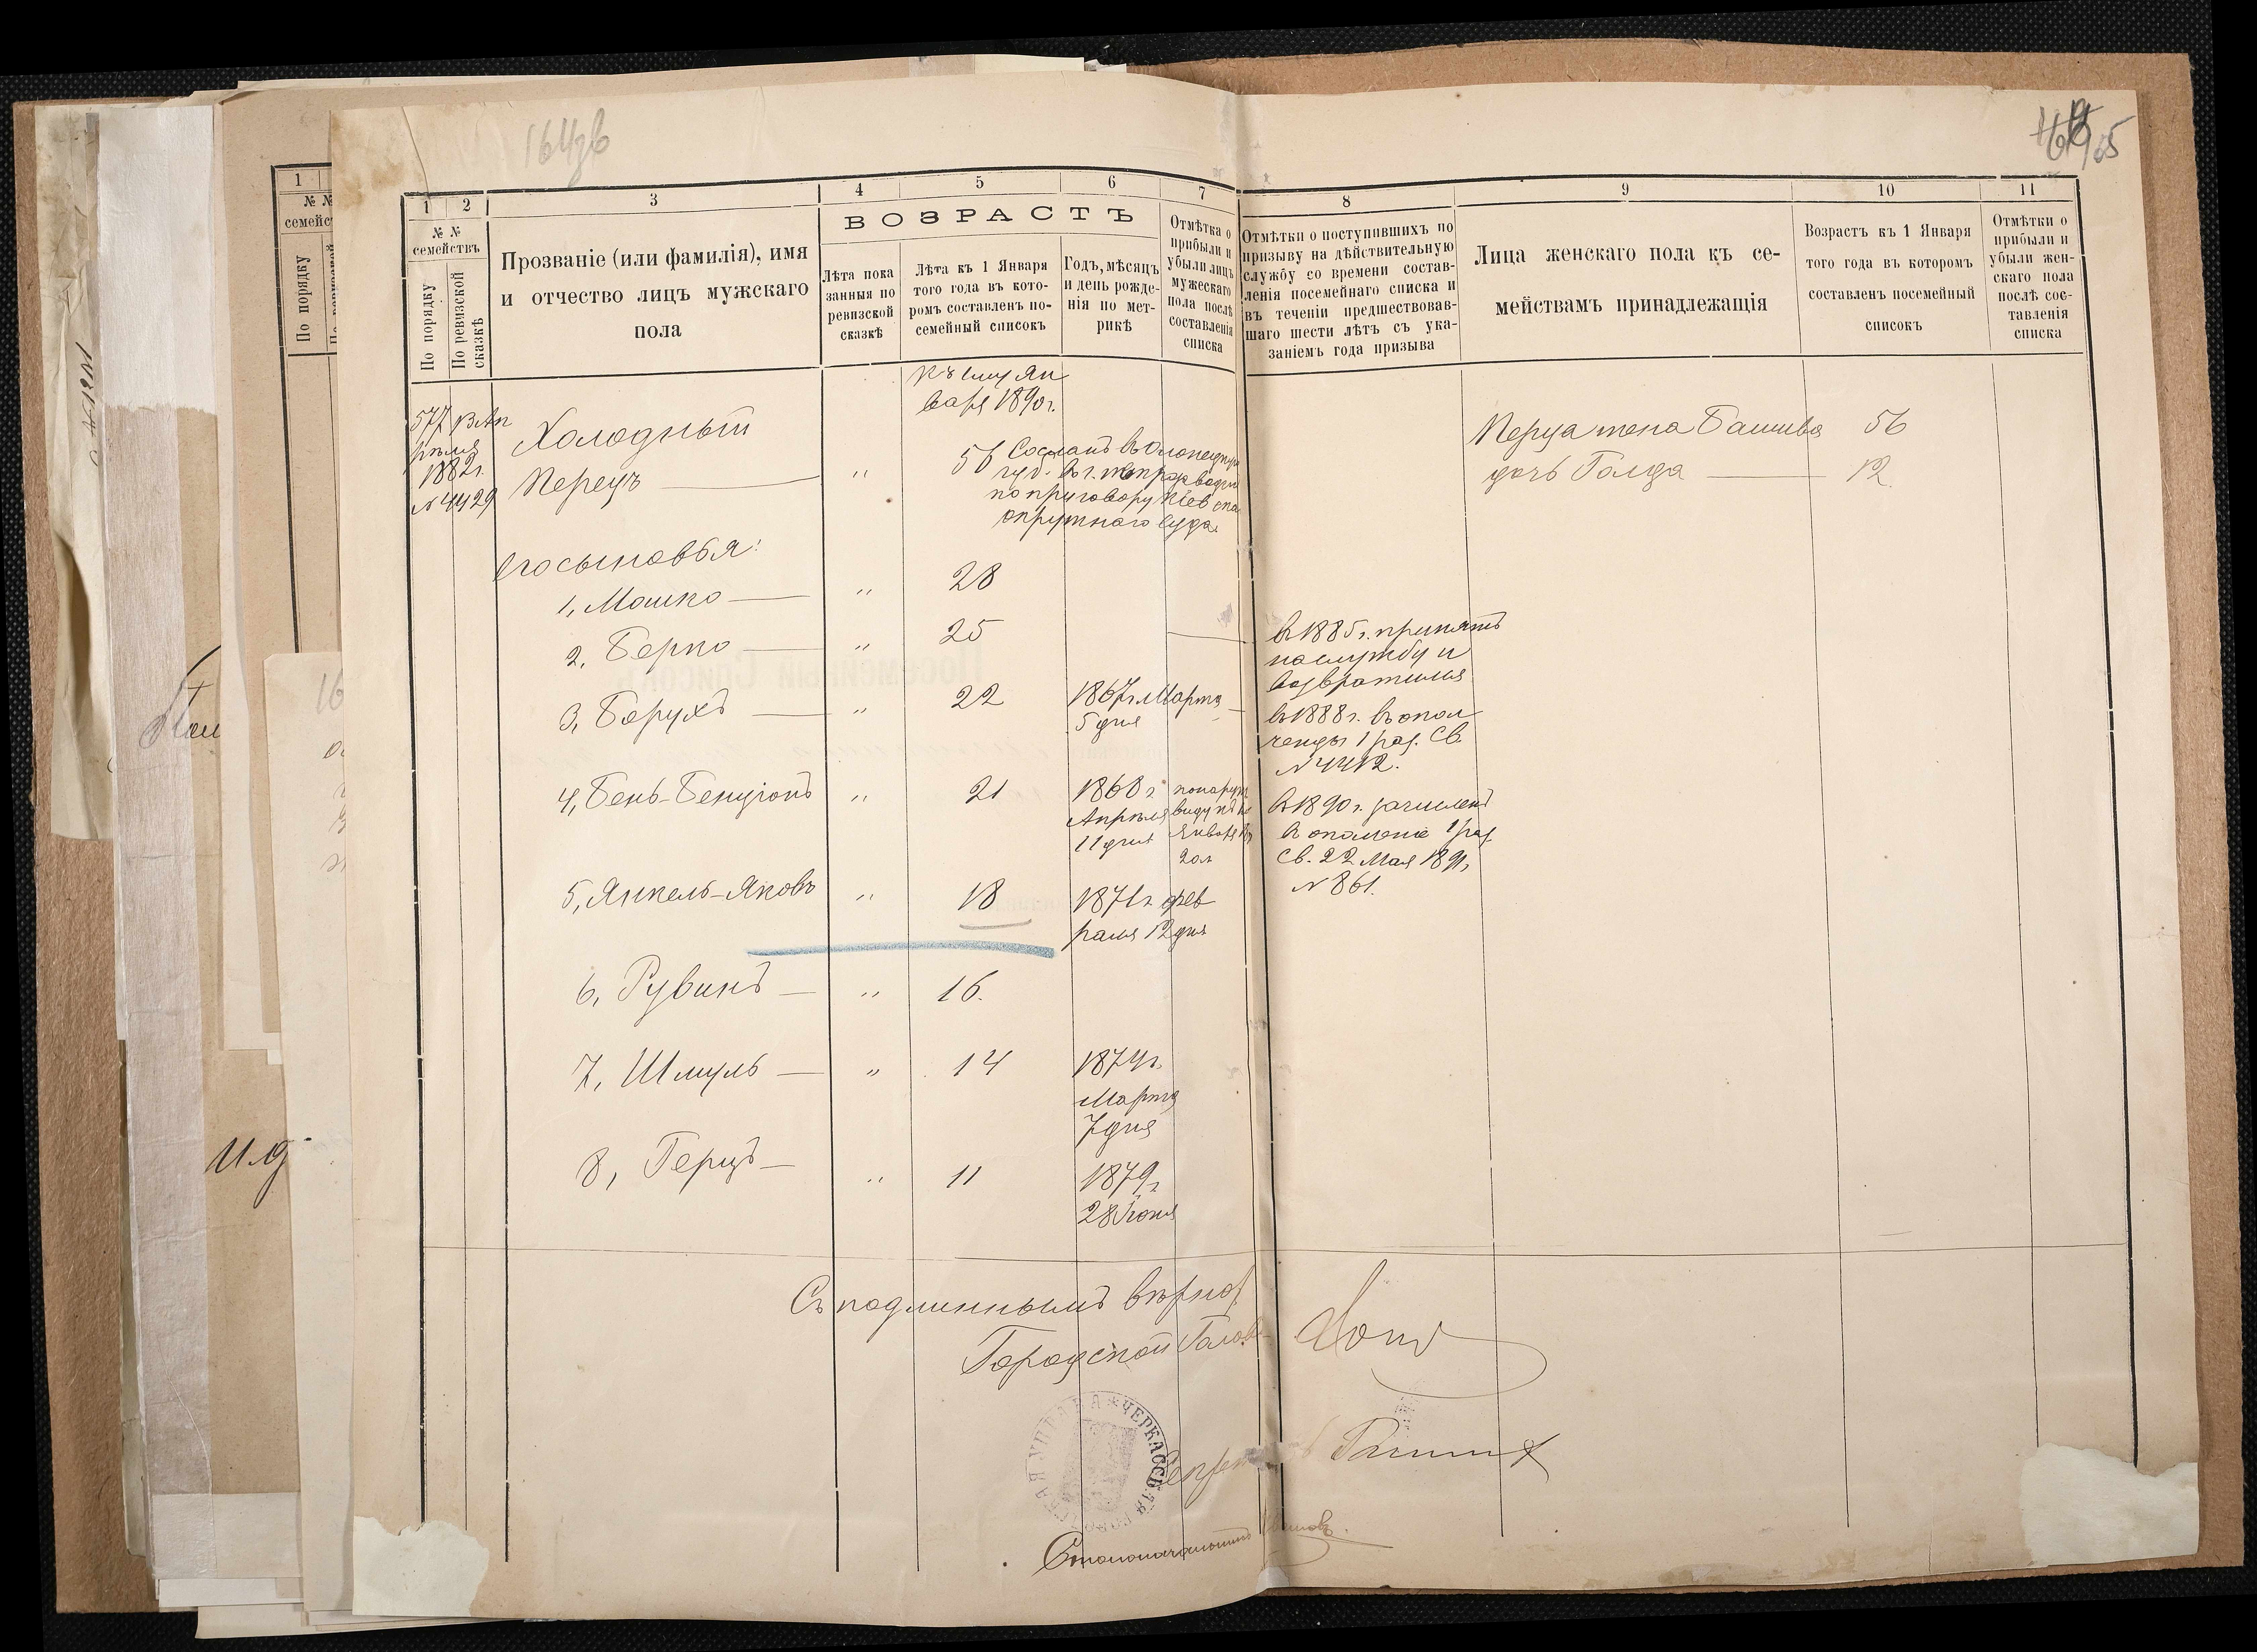 164зв
165
1 2 3 4 5 6 7 8 9 10 11
№ №
семействъ
По порядку
По ревизской
сказкѣ
Прозваніе (или фамилія), имя
и отчество лицъ мужскаго
пола
ВОЗРАСТЪ
Лѣта пока
занныя по
ревизской
сказкѣ
Лѣта къ 1 Января
того года въ кото-
ромъ составленъ по-
семейный списокъ
Годъ, мѣсяцъ
и день рожде-
нія по мет-
рикѣ
Отмѣтка о
прибыли и
убыли лицъ
мужескаго
пола послѣ
составленія
списка
Отмѣтки о поступившихъ по
призыву на дѣйствительную
службу со времени состав-
ленія посемейнаго списка и
въ теченіи предшествовав-
шаго шести лѣтъ съ ука-
заніемъ года призыва
Лица женскаго пола къ се-
мействамъ принадлежащія
Возрастъ къ 1 Января
того года въ которомъ
составленъ посемейный
списокъ
Отмѣтки о
прибыли и
убыли жен-
скаго пола
послѣ сос-
тавленія
списка
1
№ №
По порядку
къ 1му Ян
варя 1890 г.
577 В Ап
рѣля
1882 г.
№ 4429
Холодный
Перецъ — " 56
Сосланъ въ Олонецкую
губ. въ г.
по приговору Кіевска
окружнаго Суда.
Перца жена Башива 56
дочь Голда — 12
Его сыновья:
1, Мошко — " 28
2, Берко — " 25
в 1885 г. принятъ
на службу и
возвратился
3, Борухъ — " 22 1867 г. Марта
5 дня
в 1888 г. въ опол
ченцы 1 раз. Св.
№ 4412.
4, Бень-Бенціонъ " 21 1868 г.
Апрѣля
11 дня
по наруж
виду къ
Января
20 л
в 1890 г. зачисленъ
в ополчене 1 раз.
Св. 22 Мая 1891 г
№ 861.
5, Янкель-Яковъ " 18 1871 г. фев
раля 12 дня
6, Рувинъ — " 16.
7, Шмуль — " 14 1874 г.
Марта
7 дня
8, Герцъ — " 11 1879 г
28 Іюня
Съ подлиннымъ вѣрно:
Городской Голова
ЧЕРКАССКАЯ ГОРОДСКАЯ УПРАВА
Столоначальникъ